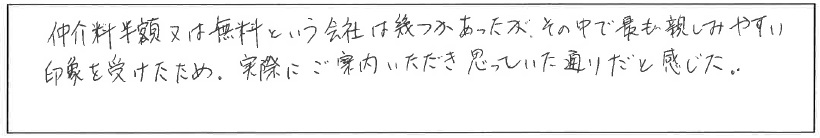 仲介料半額又は無料という会社は幾つかあったが、その中で最も親しみやすい
印象を受けたため。実際にご案内いただき思っていた通りだと感じた。